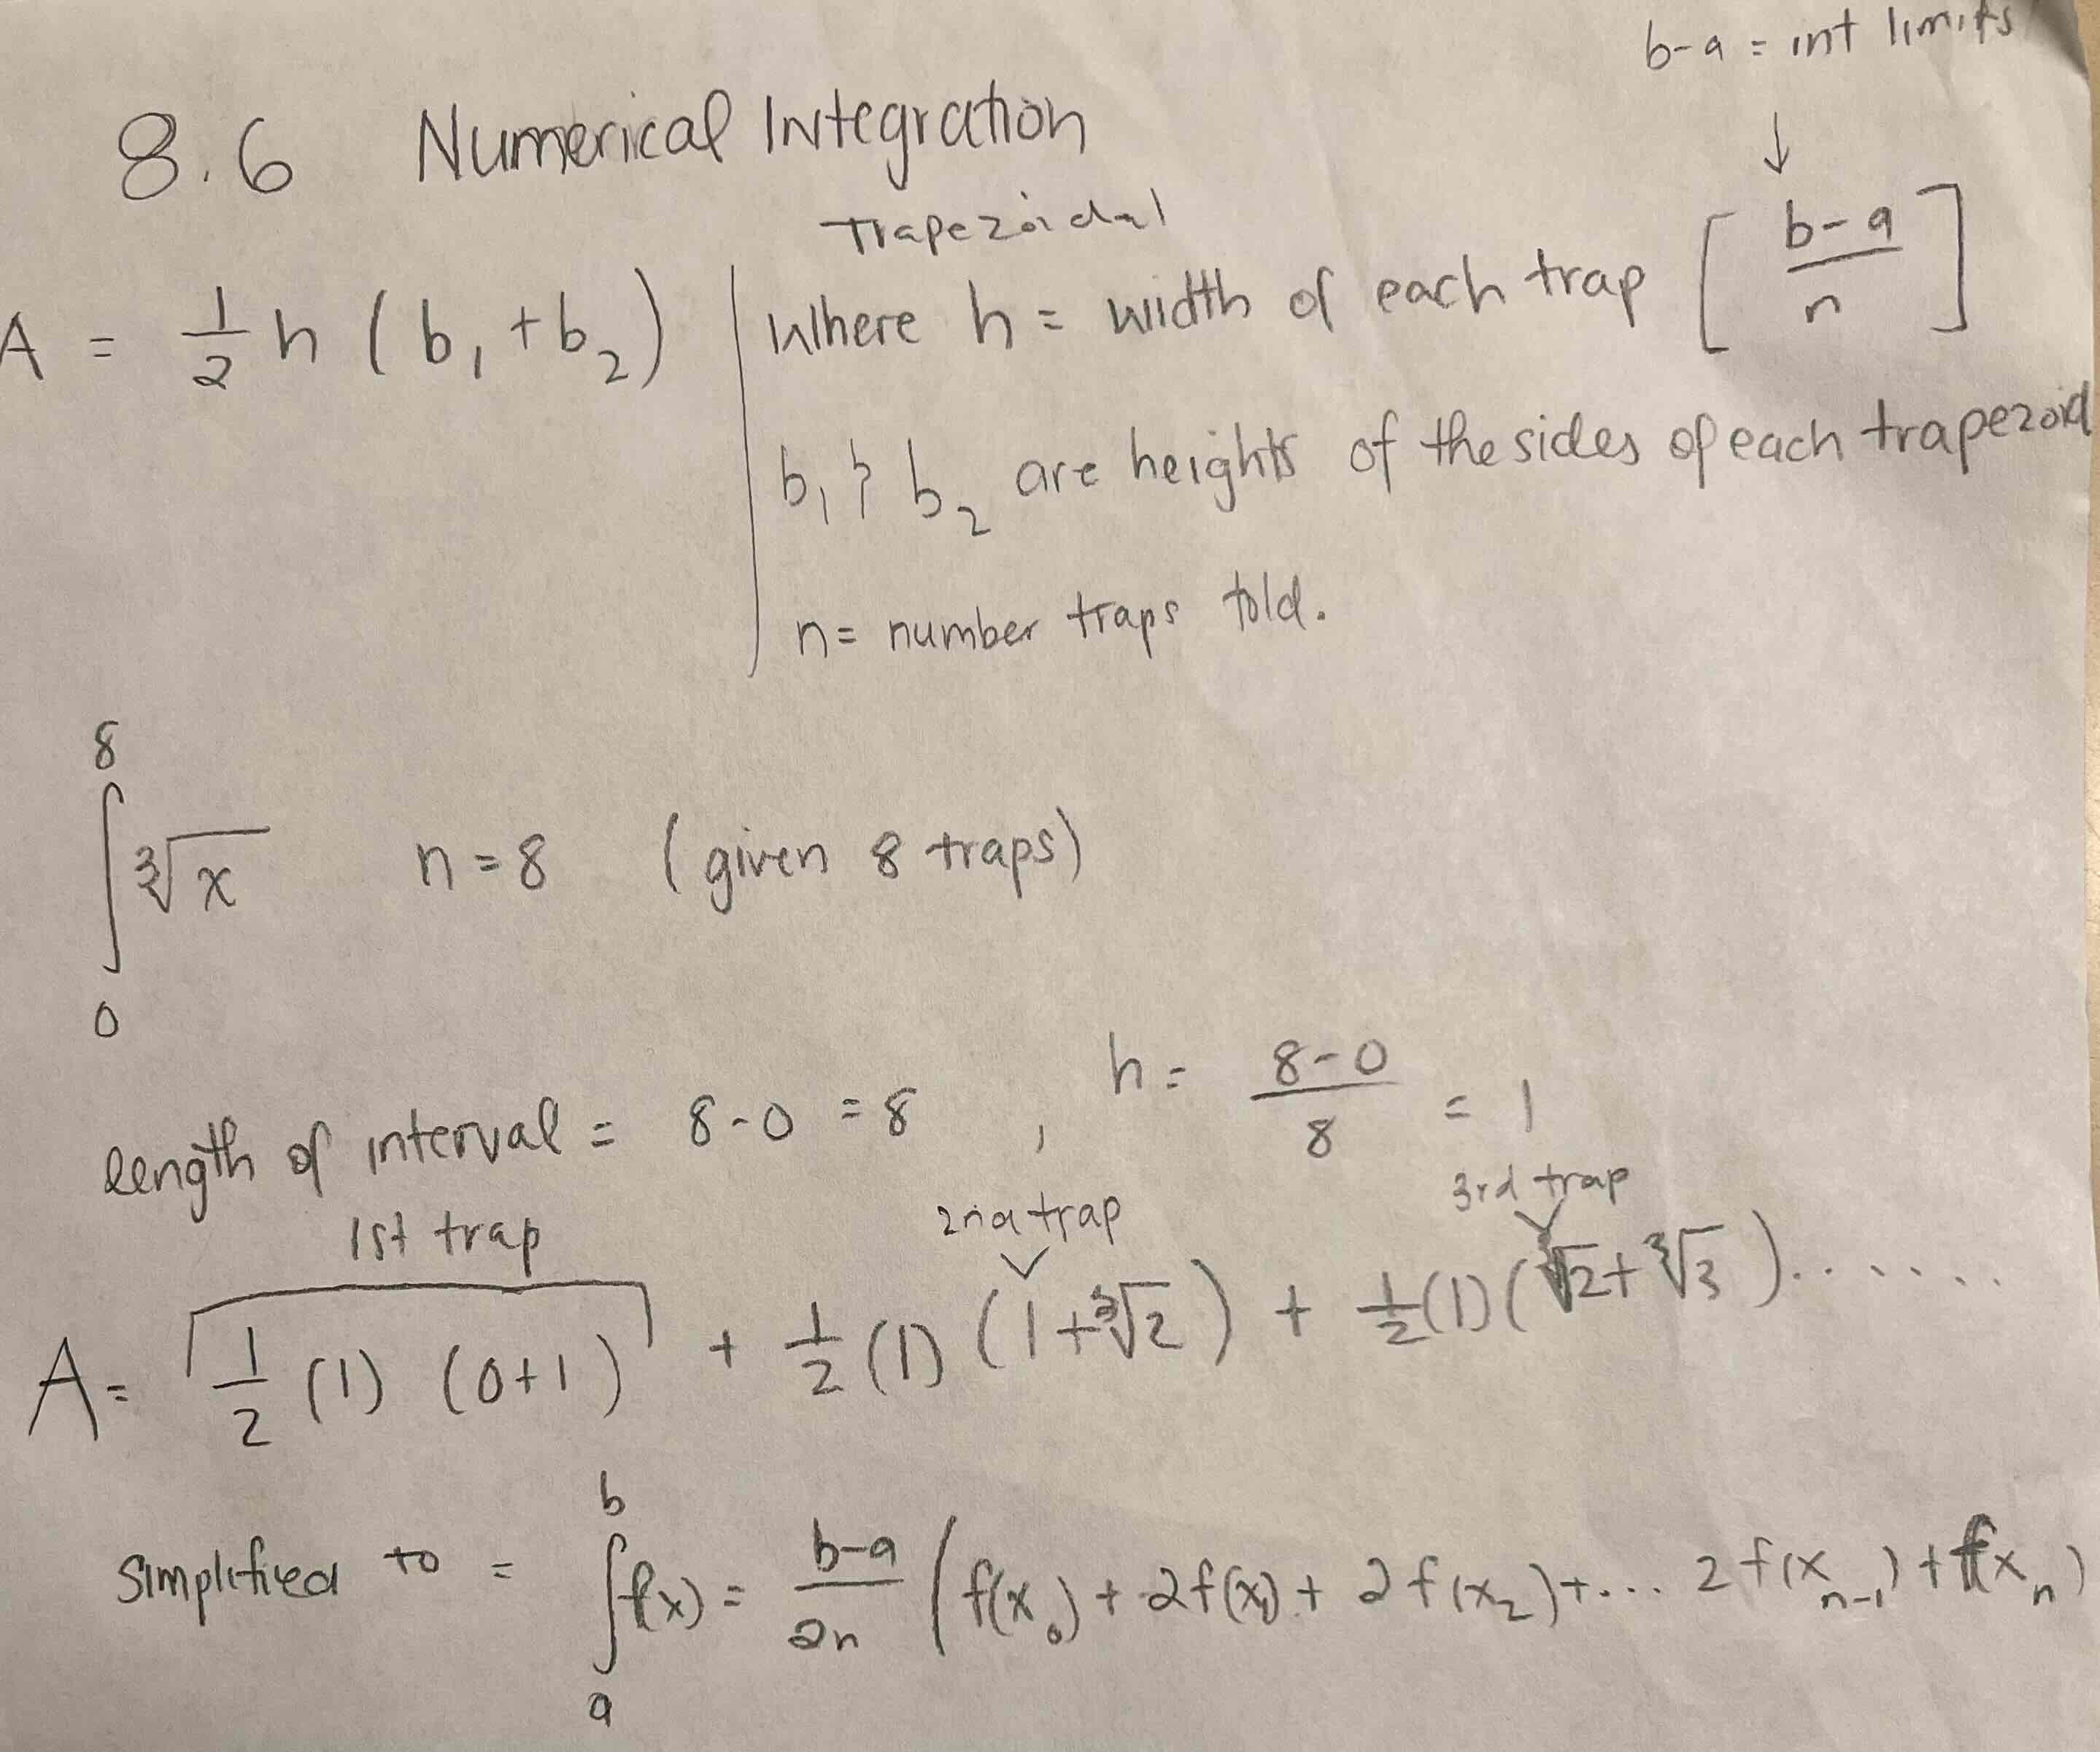 b-a = int limits
↓
8.6 Numerical Integration
Trapezoidal
A = 1/2 h (b₁ + b₂) | Where h = width of each trap [ (b-a)/n ]
b₁ & b₂ are heights of the sides of each trapezoid
n = number traps told.
∫₀⁸ ∛x n = 8 (given 8 traps)
length of interval = 8-0 = 8 , h = (8-0)/8 = 1
1st trap 2nd trap 3rd trap
A = 1/2 (1) (0+1) + 1/2 (1) (1+∛2) + 1/2 (1) (∛2 + ∛3) .......
Simplified to = ∫ₐᵇ f(x) = (b-a)/2n ( f(x₀) + 2f(x₁) + 2f(x₂) + ... 2f(xₙ₋₁) + f(xₙ)